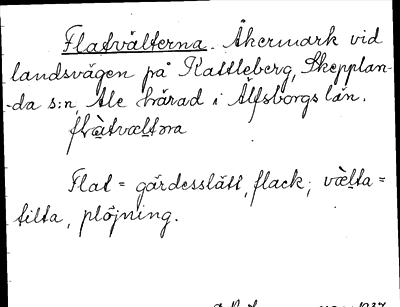 Flatvälterna. Åkermark vid
landsvägen på Kattleberg, Skepplan-
-da s:n, Ale härad i Älfsborgs län.
flàtvæltɘra
Flat = gärdesslätt, flack; væ̀lta =
tilta, plöjning.
1937